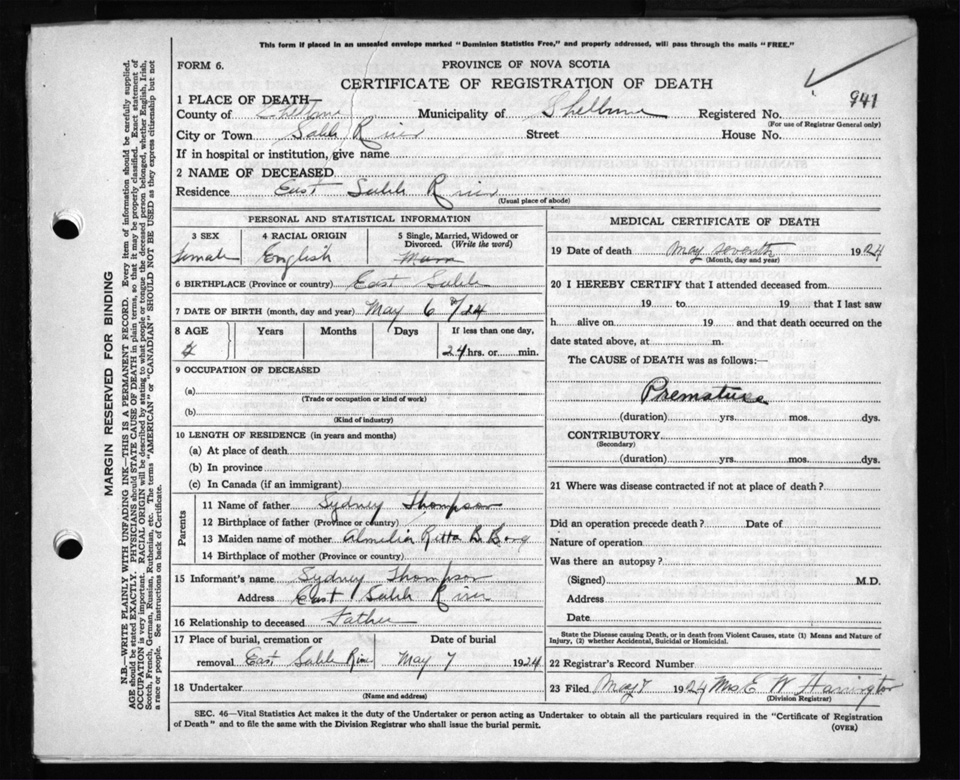 This form if placed in an unsealed envelope marked "Dominion Statistics Free," and properly addressed, will pass through the mails "FREE."
FORM 6.
PROVINCE OF NOVA SCOTIA
CERTIFICATE OF REGISTRATION OF DEATH
941
1 PLACE OF DEATH
County of Municipality of Shelburne Registered No.
(For use of Registrar General only)
City or Town Sable River Street House No.
If in hospital or institution, give name
2 NAME OF DECEASED
Residence East Sable River
(Usual place of abode)
PERSONAL AND STATISTICAL INFORMATION
3 SEX 4 RACIAL ORIGIN 5 Single, Married, Widowed or Divorced. (Write the word)
Female English
6 BIRTHPLACE (Province or country) East Sable
7 DATE OF BIRTH (month, day and year) May 6 /24
8 AGE Years Months Days If less than one day,
24 hrs. or min.
9 OCCUPATION OF DECEASED
(a)
(Trade or occupation or kind of work)
(b)
(Kind of industry)
10 LENGTH OF RESIDENCE (in years and months)
(a) At place of death
(b) In province
(c) In Canada (if an immigrant)
Parents
11 Name of father Sydney Thompson
12 Birthplace of father (Province or country)
13 Maiden name of mother Ritta B.
14 Birthplace of mother (Province or country)
15 Informant's name Sydney Thompson
Address East Sable River
16 Relationship to deceased Father
17 Place of burial, cremation or removal East Sable River
Date of burial
May 7 1924
18 Undertaker
(Name and address)
MEDICAL CERTIFICATE OF DEATH
19 Date of death May seventh 1924
(Month, day and year)
20 I HEREBY CERTIFY that I attended deceased from
19 to 19 that I last saw
h alive on 19 and that death occurred on the
date stated above, at m.
The CAUSE of DEATH was as follows:—
Premature
(duration) yrs. mos. dys.
CONTRIBUTORY
(Secondary)
(duration) yrs. mos. dys.
21 Where was disease contracted if not at place of death?
Did an operation precede death? Date of
Nature of operation
Was there an autopsy?
(Signed) M.D.
Address
Date
State the Disease causing Death, or in death from Violent Causes, state (1) Means and Nature of
Injury, (2) whether Accidental, Suicidal or Homicidal.
22 Registrar's Record Number
23 Filed May 8 1924 Mrs E W Harrington
(Division Registrar)
SEC. 46—Vital Statistics Act makes it the duty of the Undertaker or person acting as Undertaker to obtain all the particulars required in the "Certificate of Registration
of Death" and to file the same with the Division Registrar who shall issue the burial permit.
(OVER)
MARGIN RESERVED FOR BINDING
N.B.—WRITE PLAINLY WITH UNFADING INK—THIS IS A PERMANENT RECORD. Every item of information should be carefully supplied.
AGE should be stated EXACTLY. PHYSICIANS should STATE CAUSE OF DEATH in plain terms, so that it may be properly classified. Exact statement of
OCCUPATION is very important. RACIAL ORIGIN will be described by stating to what people or tongue the deceased person belonged, whether English, Irish,
Scotch, French, German, Russian, Ruthenian, etc. The terms "AMERICAN" or "CANADIAN" SHOULD NOT BE USED as they express citizenship but not
a race or people. See instructions on back of Certificate.